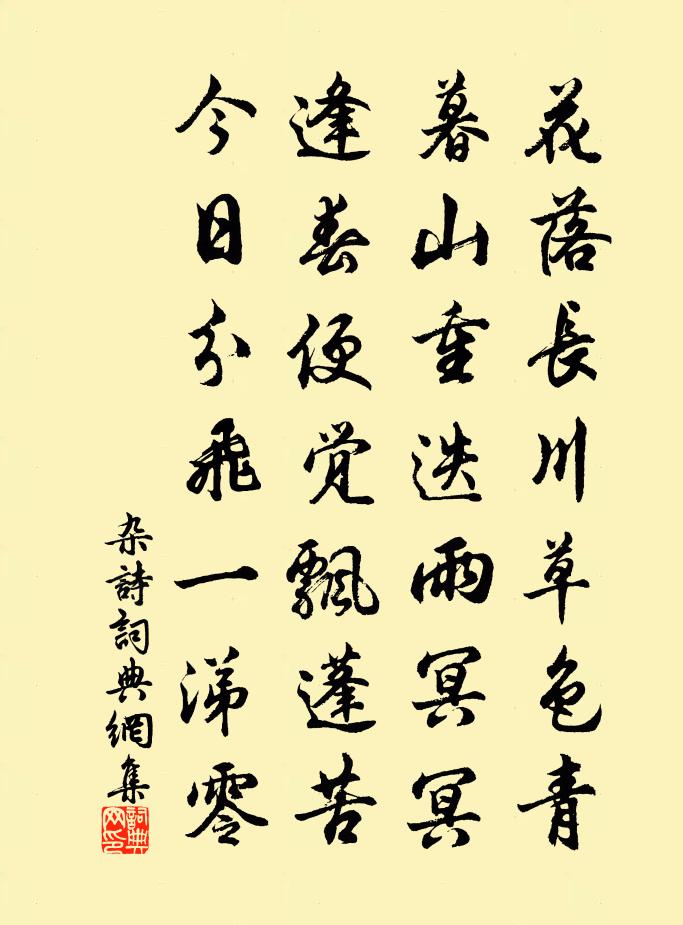 花落長川草色青
暮山重迭雨冥冥
逢春便觉飄蓬苦
今日分飛一涕零
杂詩詞典網集
詞典網印